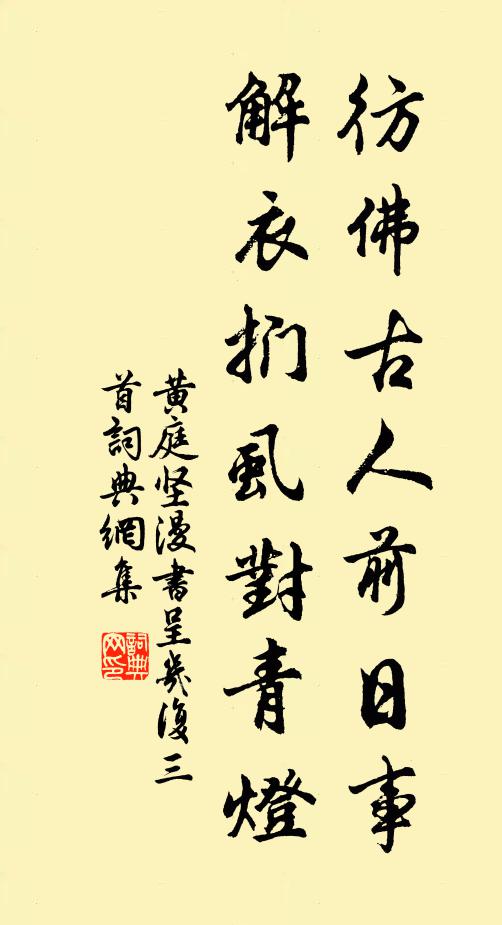 彷佛古人前日事
解衣捫虱對青燈
黄庭坚漫書呈幾復三
首詞典網集
詞典
网印